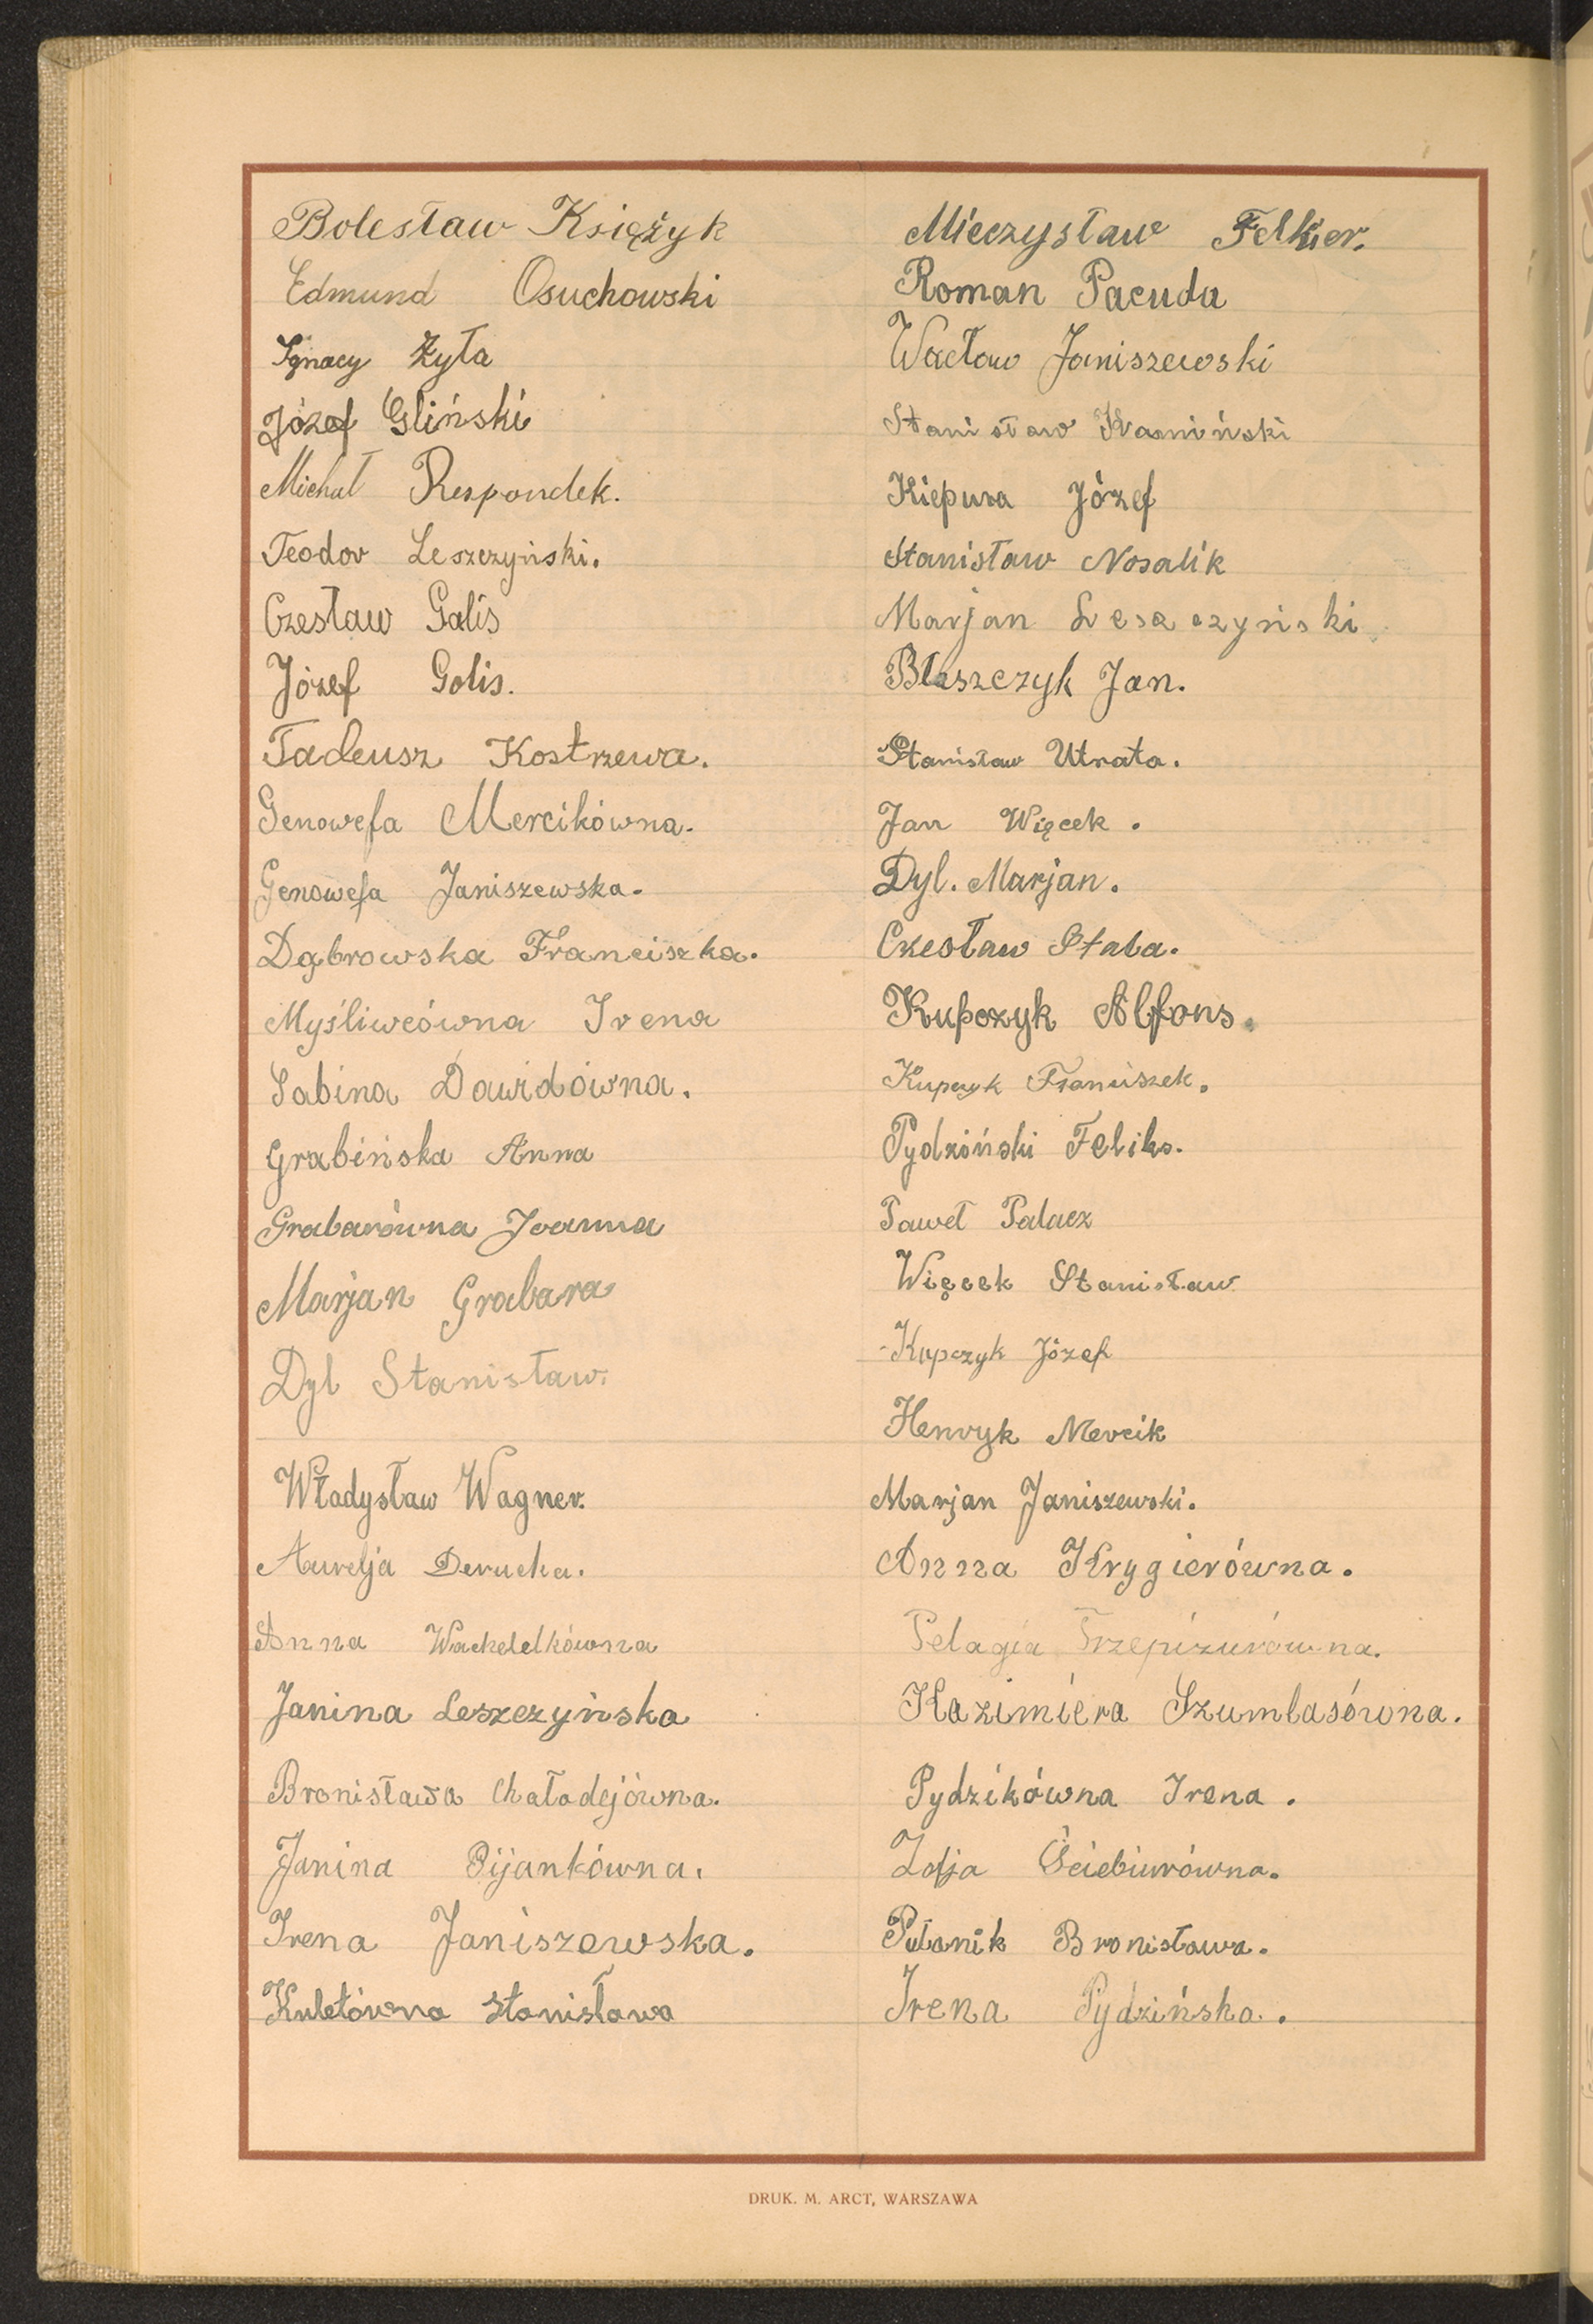 Bolesław Księżyk
Edmund Osuchowski
Ignacy Żyła
Józef Gliński
Michał Respondek.
Teodor Leszczyński.
Czesław Galis
Józef Golis.
Tadeusz Kostrzewa.
Genowefa Mercikówna.
Genowefa Janiszewska.
Dąbrowska Franciszka.
Myśliwcówna Irena
Sabina Dawidówna.
Grabińska Anna
Grabarówna Joanna
Marjan Grabara
Dyl Stanisław.
Władysław Wagner.
Aurelja Derucha.
Anna Wachelelkówna
Janina Leszczyńska
Bronisława Chaładejówna.
Janina Pijankówna.
Irena Janiszewska.
Kuletówna Stanisława
Mieczysław Felkier.
Roman Pacuda
Wacław Janiszewski
Stanisław
Kiepura Józef
Stanisław Nosalik
Marjan Leszczyński
Błaszczyk Jan.
Stanisław Utrata.
Jan Więcek.
Dyl. Marjan.
Czesław Staba.
Kupczyk Alfons.
Kupczyk Franciszek.
Pydziński Feliks.
Paweł Palacz
Więcek Stanisław
Kupczyk Józef
Henryk Mercik
Marjan Janiszewski.
Anna Krygierówna.
Pelagia Trzepizurówna.
Kazimiera Szumlasówna.
Pydzikówna Irena.
Zofja Ściebiurówna.
Bronisława.
Irena Pydzińska.
DRUK. M. ARCT, WARSZAWA